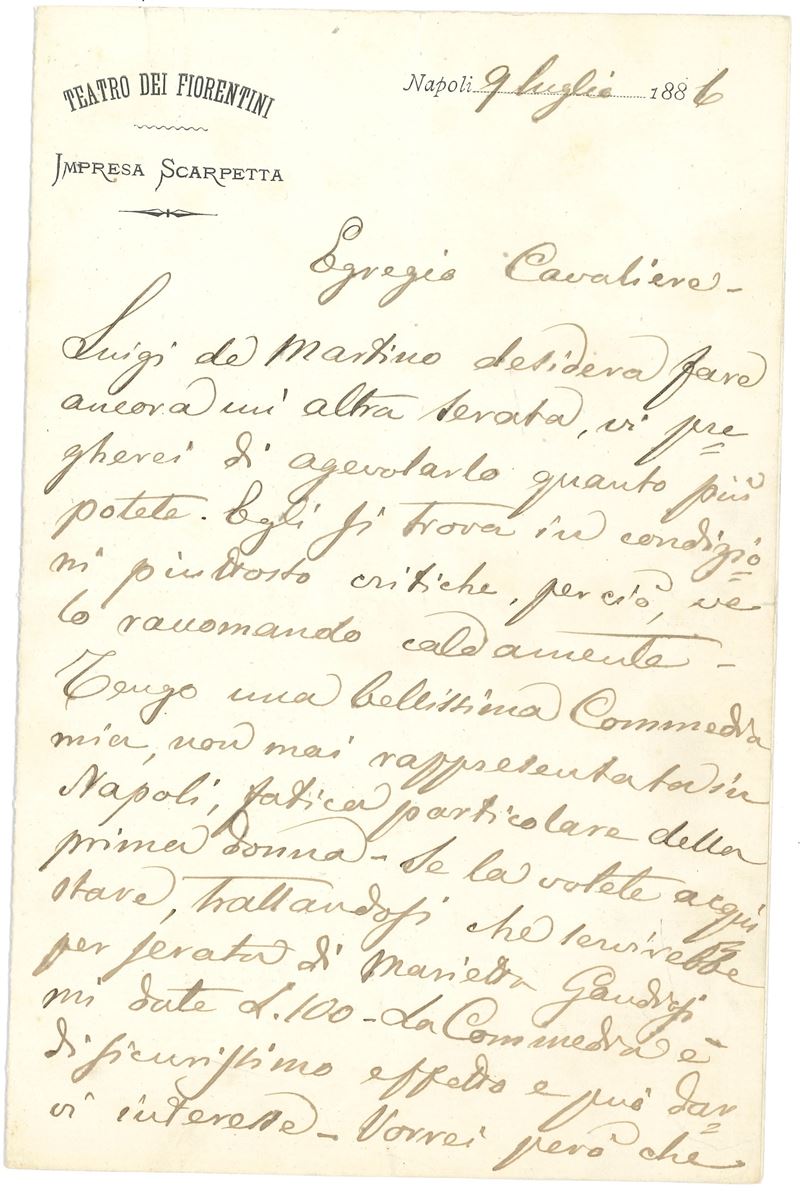 TEATRO DEI FIORENTINI
IMPRESA SCARPETTA
Napoli 9 luglio 1886
Egregio Cavaliere -
Luigi de Martino desidera fare
ancora un altra serata, vi pre=
gherei di agevolarlo quanto più
potete. Egli si trova in condizio=
ni piuttosto critiche, perciò, ve
lo raccomando caldamente -
Tengo una bellissima Commedia
mia, non mai rappresentata in
Napoli, fatica particolare della
prima donna - Se la volete acqui=
stare, trattandosi che servirebbe
per serata di Marietta Gaudiosi
mi date L. 100 - La Commedia è
di sicurissimo effetto e può dar=
vi interesse - Vorrei però che